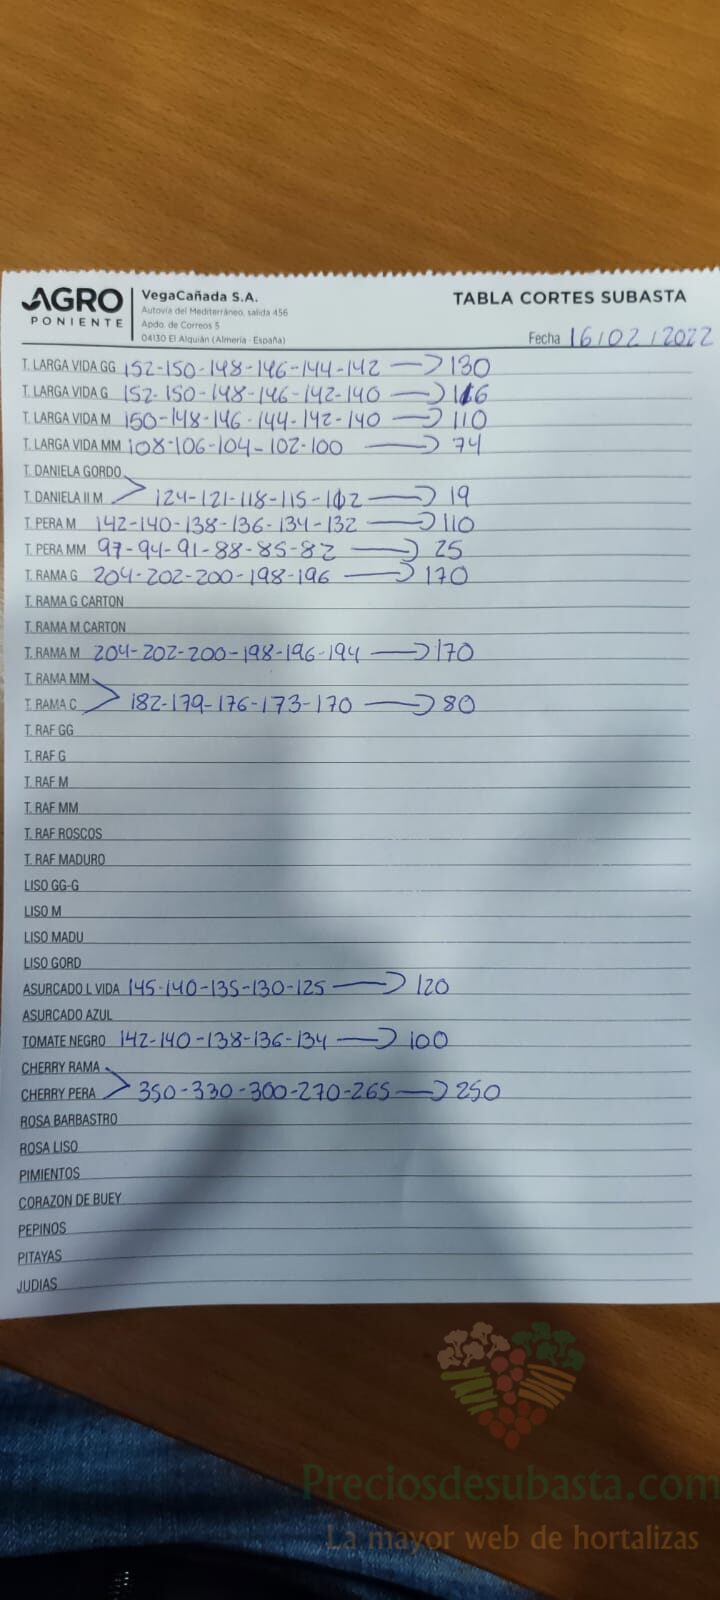 AGRO PONIENTE
VegaCañada S.A.
Autovía del Mediterráneo, salida 456
Apdo. de Correos 5
04130 El Alquián (Almería - España)
TABLA CORTES SUBASTA
Fecha 16/02/2022
T. LARGA VIDA GG 152-150-148-146-144-142 → 130
T. LARGA VIDA G 152-150-148-146-142-140 → 116
T. LARGA VIDA M 150-148-146-144-142-140 → 110
T. LARGA VIDA MM 108-106-104-102-100 → 74
T. DANIELA GORDO
T. DANIELA II M 124-121-118-115-112 → 19
T. PERA M 142-140-138-136-134-132 → 110
T. PERA MM 97-94-91-88-85-82 → 25
T. RAMA G 204-202-200-198-196 → 170
T. RAMA G CARTON
T. RAMA M CARTON
T. RAMA M 204-202-200-198-196-194 → 170
T. RAMA MM
T. RAMA C 182-179-176-173-170 → 80
T. RAF GG
T. RAF G
T. RAF M
T. RAF MM
T. RAF ROSCOS
T. RAF MADURO
LISO GG-G
LISO M
LISO MADU
LISO GORD
ASURCADO L VIDA 145-140-135-130-125 → 120
ASURCADO AZUL
TOMATE NEGRO 142-140-138-136-134 → 100
CHERRY RAMA
CHERRY PERA 350-330-300-270-265 → 250
ROSA BARBASTRO
ROSA LISO
PIMIENTOS
CORAZON DE BUEY
PEPINOS
PITAYAS
JUDIAS
Preciosdesubasta.com
La mayor web de hortalizas